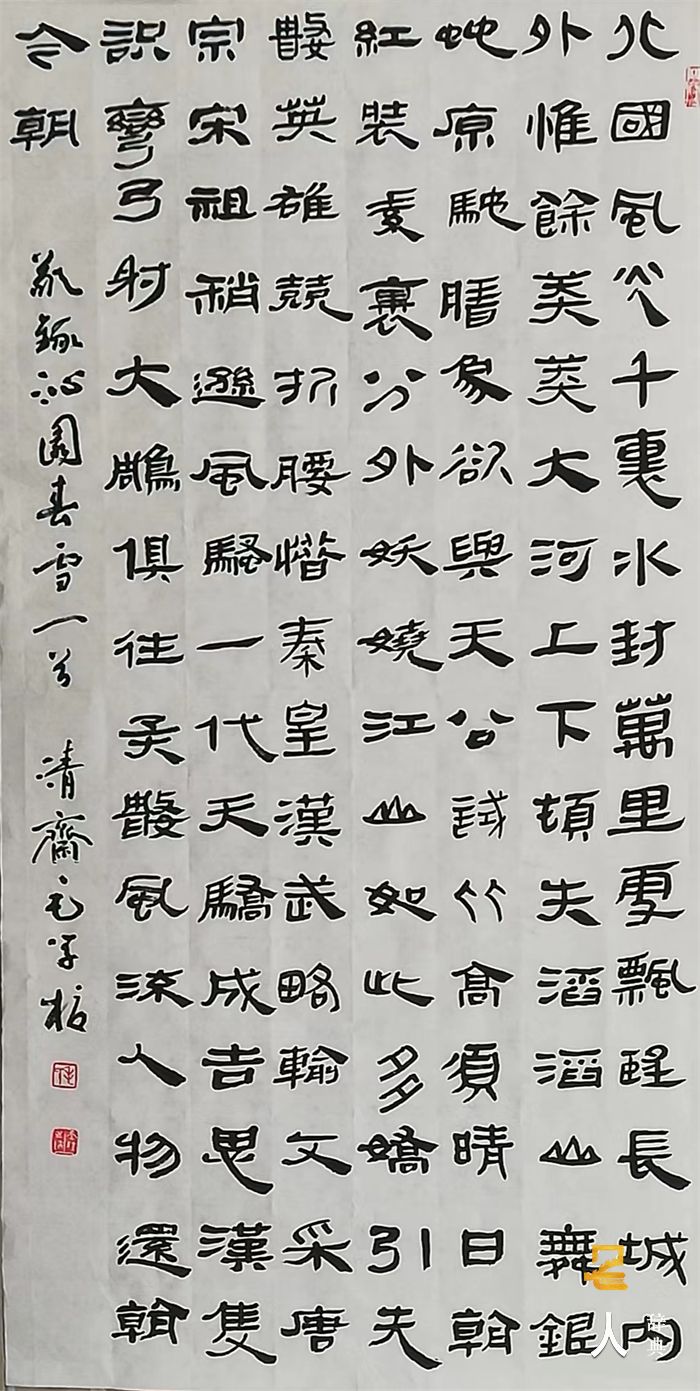 北國風光千裏冰封萬里雪飄望長城內
外惟餘莽莽大河上下頓失滔滔山舞銀
蛇原馳腊象欲與天公試比高須晴日看
紅裝素裏分外妖嬈江山如此多嬌引无
數英雄競折腰惜秦皇漢武略輸文采唐
宗宋祖稍遜風騷一代天驕成吉思漢隻
識彎弓射大鵰俱往矣數風流人物還看
今朝
敬錄沁園春雪一首 齋毛
名人
辞典